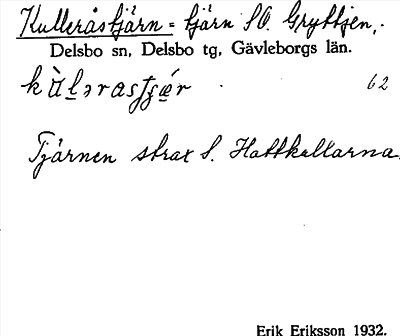 Kulleråstjärn = tjärn SO. Gryttjen,.
Delsbo sn, Delsbo tg, Gävleborgs län.
62
Tjärnen strax S. Hattkullarna.
Erik Eriksson 1932.